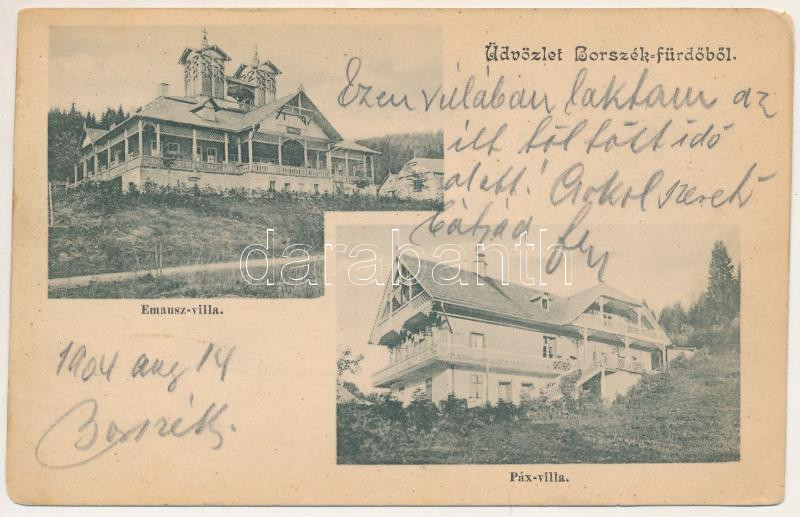 Üdvözlet Borszék-fürdőből.
Ezen villában laktam az
itt töltött idő
alatt! Csókol szerető
Bátjád
Emausz-villa.
darabanth.com
1904 aug 14
Borszék.
Páx-villa.